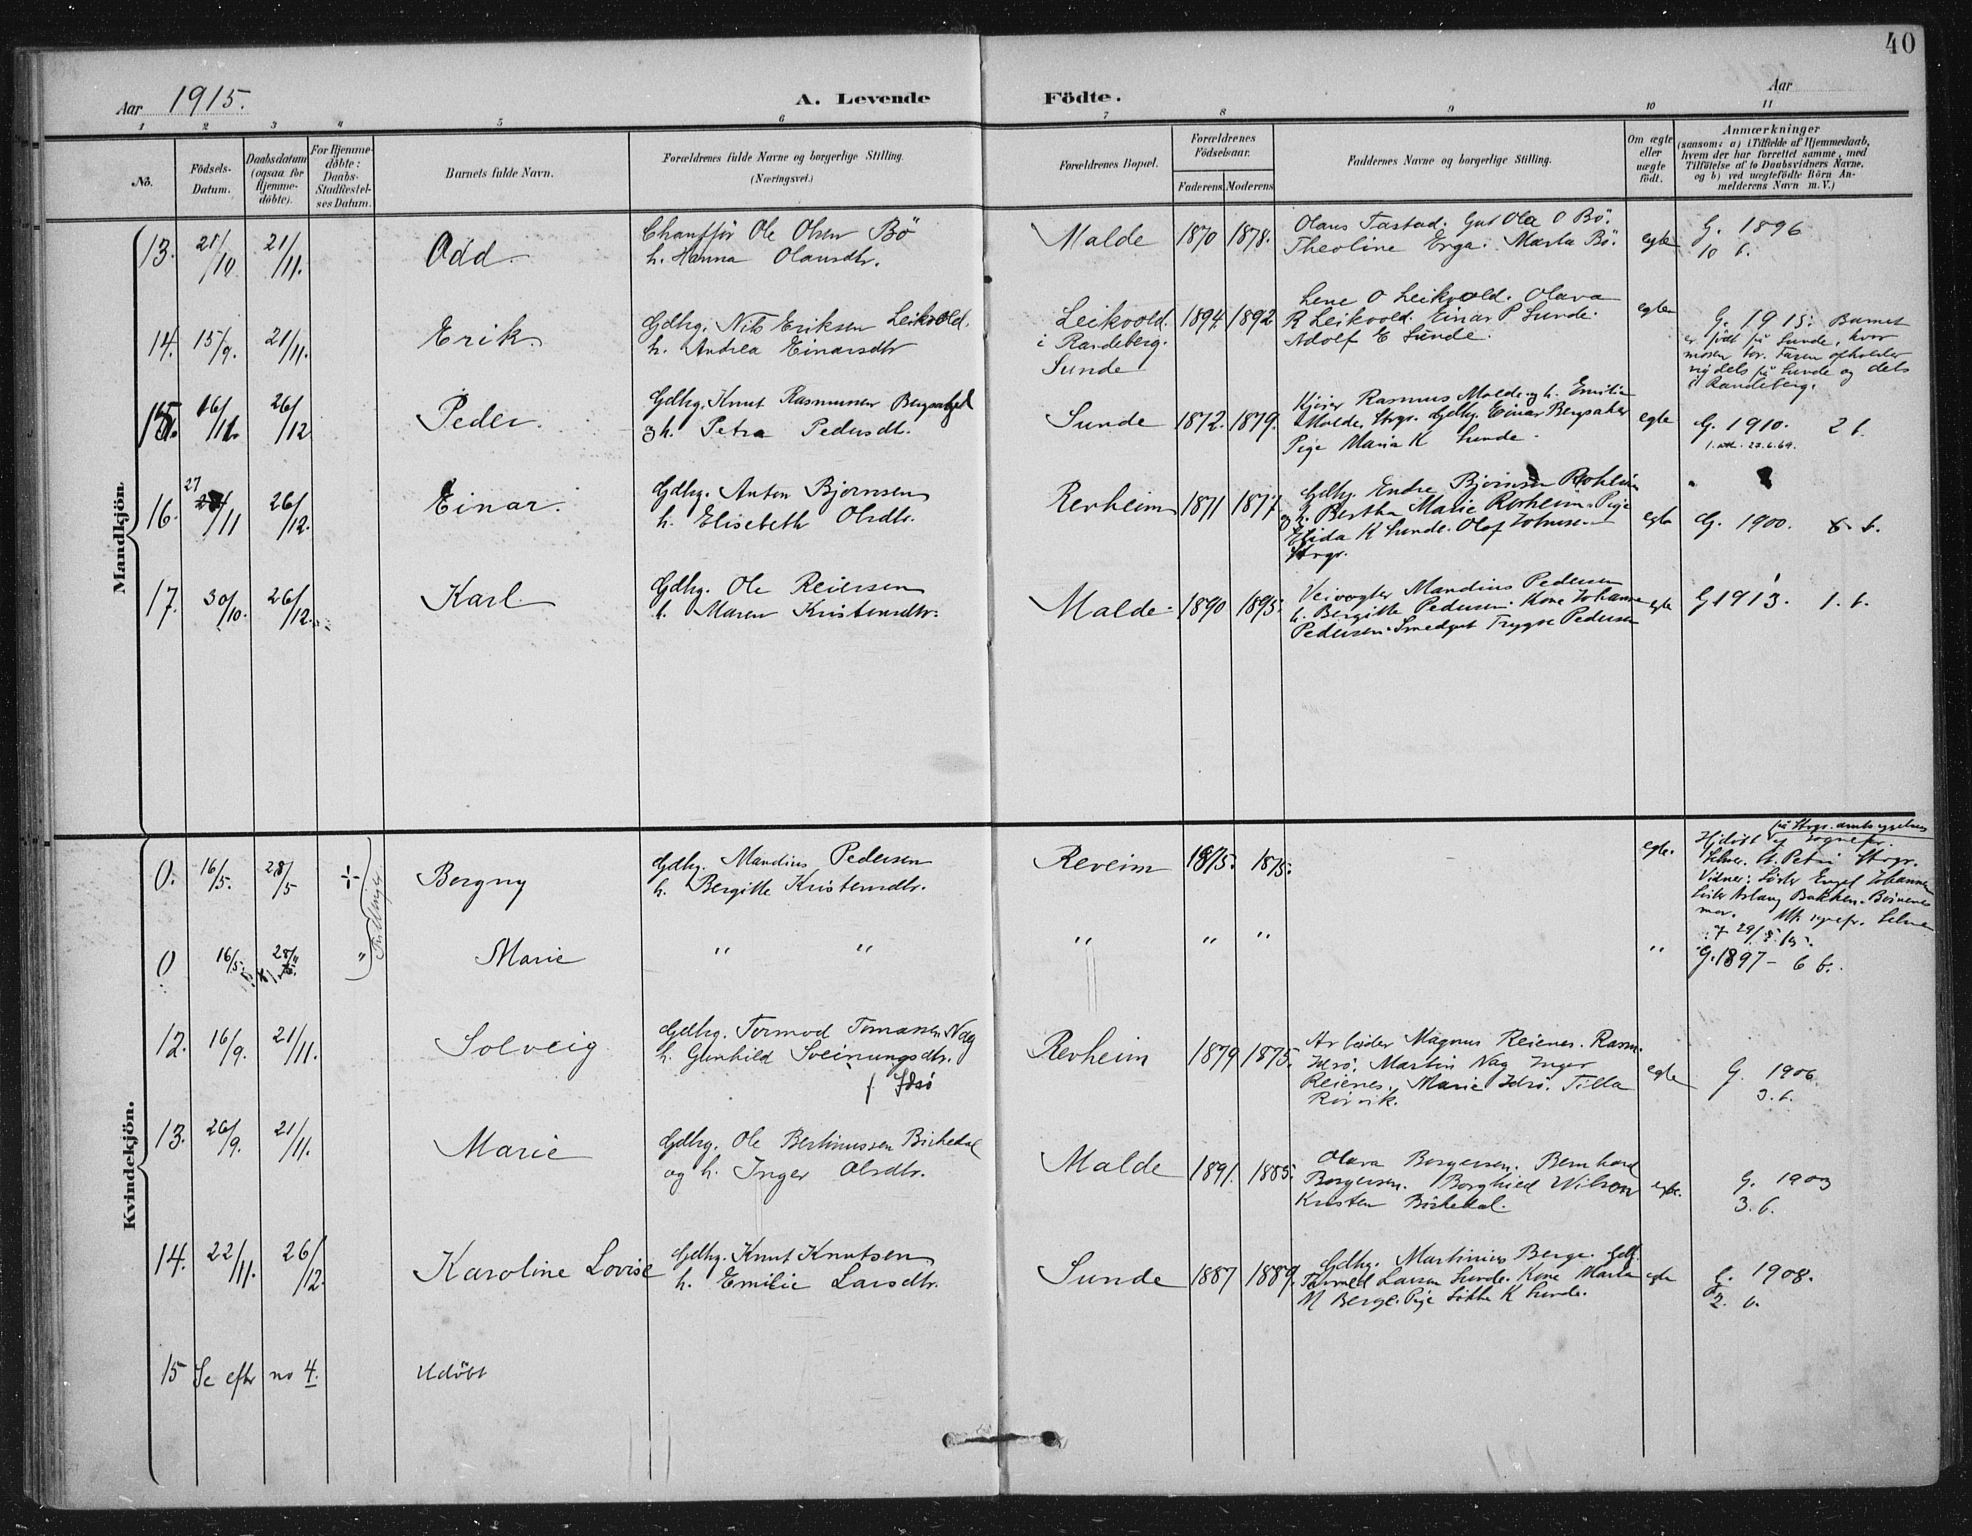 40
Aar 1915. A. Levende Födte. Aar
1 2 3 4 5 6 7 8 9 10 11
No. Födsels-Datum. Daabsdatum (ogsaa for Hjemme-döbte). For Hjemme-döbte: Daabs-Stadfæstel-ses Datum. Barnets fulde Navn. Forældrenes fulde Navne og borgerlige Stilling. (Næringsvei.) Forældrenes Bopæl. Forældrenes Födselsaar. Faderens Moderens Faddernes Navne og borgerlige Stilling. Om ægte eller uægte födt. Anmærkninger (saasom: a) i Tilfælde af Hjemmedaab, hvem der har forrettet samme, med Tilföielse af to Daabsvidners Navne. og b) ved uægtefödte Börn An-melderens Navn m. V.)
Mandkjön.
13. 21/10 21/11. Odd. Chaufför Ole Olsen Bö
h. Hanna Olausdtr. Malde 1870 1878. Olaus Tastad. Gut Ola O Bö.
Theoline Erga. Marta Bö. egte G. 1896
10 b.
14. 15/9. 21/11. Erik. Gdbrg. Nils Eriksen Leikvold.
h. Andrea Einarsdtr Leikvold.
i Randeberg.
Sunde 1894 1892 Lene O Leikvold. Olava
R Leikvold. Einar P Sunde.
Adolf E Sunde. egte G. 1915. Barnet
er födt på Sunde, hvor
moren bor. Faren opholder
sig dels på Sunde og dels
i Randeberg.
15. 16/11. 26/12 Peder. Gdbrg. Knut Rasmussen Bergsaker
h. Petra Pedersdtr. Sunde 1872. 1879. Rasmus Malde og h. Emilie
Malde, Strgr. Gdbrg. Einar Bergsaker
Pige Maria K Sunde. egte G. 1910. 2 b.
16. 27/11 26/12. Einar. Gdbrg. Anton Bjørnsen
h. Elisebeth Olsdtr. Revheim 1871 1877 Gdbrg. Endre Bjørnsen
og h. Bertha Marie Pige
Elida K Sunde. Olaf Johnsen
Strgr. egte G. 1900. b.
17. 30/10. 26/12. Karl. Gdbrg. Ole Reiersen
h. Maren Kristensdtr. Malde. 1890 1895. Veivogter Mandius Pedersen
h. Bergitte Pedersen. Kone Johanne
Pedersen. Smedgut Trygve Pedersen egte G 1913. 1. b.
Kvindekjön.
0. 16/5. 28/5 Borgny Gdbrg. Mandius Pedersen
h. Bergitte Kristensdtr. Reveim 1875. 1875. egte. Hjdøbt af Sognepr.
Selmer. St. Petri Strgr.
Vidner: Søster Engel Johannesen
Søster Aslaug Bakken.
0 16/5. 28/5. " Marie " " " " " " G. 1897 - 6 b.
12. 16/9. 21/11. Solveig Gdbrg. Tormod Tomassen Nag
h. Gunhild Sveinungsdtr.
f Idsö Revheim 1879 1875. Arbeider Magnus Reienes. Rasm.
Idsö. Martin Nag Inger
Reienes. Marie Idsö. Tilla
Rörvik. egte G. 1906
3. b.
13. 26/9. 21/11. Marie Gdbrg. Ole Bertinussen Birkedal
og h. Inger Olsdtr. Malde 1891. 1885. Olava Borgersen. Bernhard
Borgersen. Borghild Wilson
Kristen Birkedal. egte. G. 1903
3. b.
14. 22/11. 26/12. Karoline Lovise Gdbrg. Knut Knutsen
h. Emilie Larsdtr. Sunde 1887 1889. Gdbrg. Martinius Berge. Gdb.
Larsen Sunde. Kone Marta
M Berge. Pige K Sunde. egte G. 1908.
2. b.
15 Se efter no 4. Udöbt